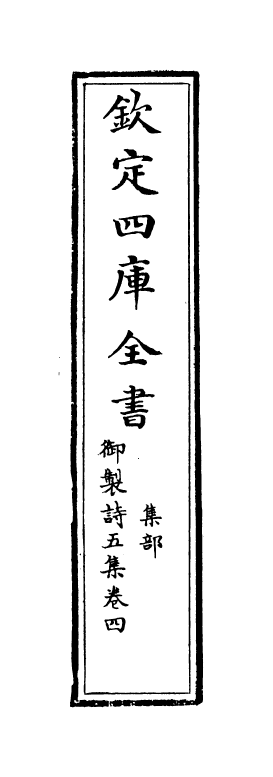 欽定四庫全書
集部
御製詩五集卷四